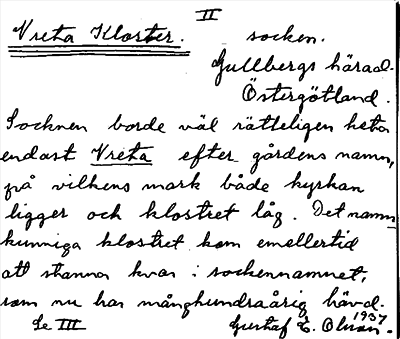 II
Vreta Kloster. socken.
Gullbergs härad.
Östergötland.
Socknen borde väl rätteligen heta
endast Vreta efter gårdens namn,
på vilkens mark både kyrkan
ligger och klostret låg. Det namn-
kunniga klostret kom emellertid
att stanna kvar i sockennamnet,
som nu har månghundraårig hävd.
Se III 1937
Gustaf E. Olsson.